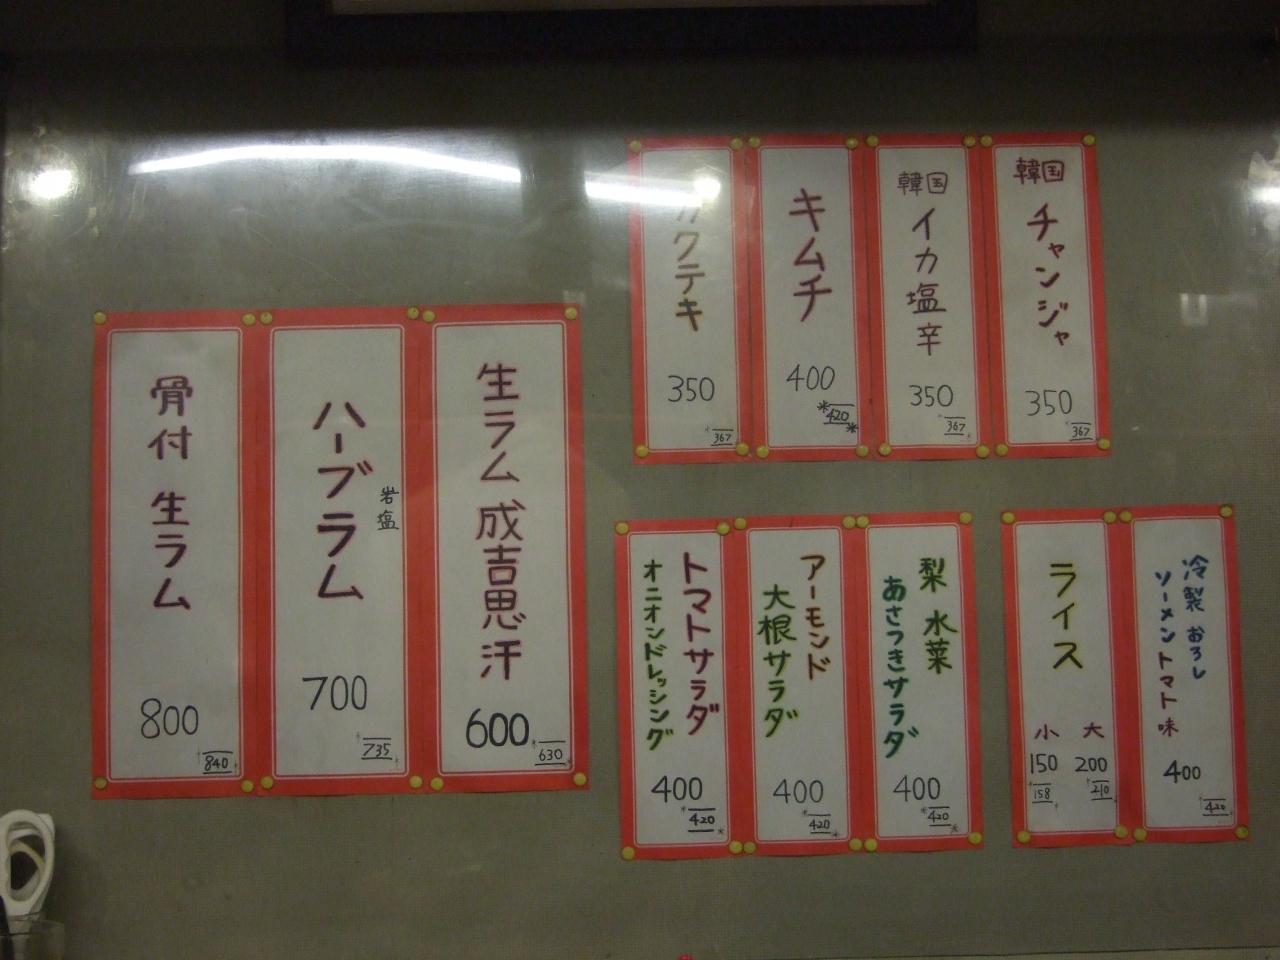 韓国
チャンジャ
350
367
韓国
イカ塩辛
350
367
キムチ
400
420
カクテキ
350
367
生ラム 成吉思汗
600
630
ハーブラム
岩塩
700
735
骨付 生ラム
800
840
冷製 おろし
ソーメントマト味
400
420
ライス
大
200
210
小
150
158
梨 水菜
あさつきサラダ
400
420
アーモンド
大根サラダ
400
420
トマトサラダ
オニオンドレッシング
400
420